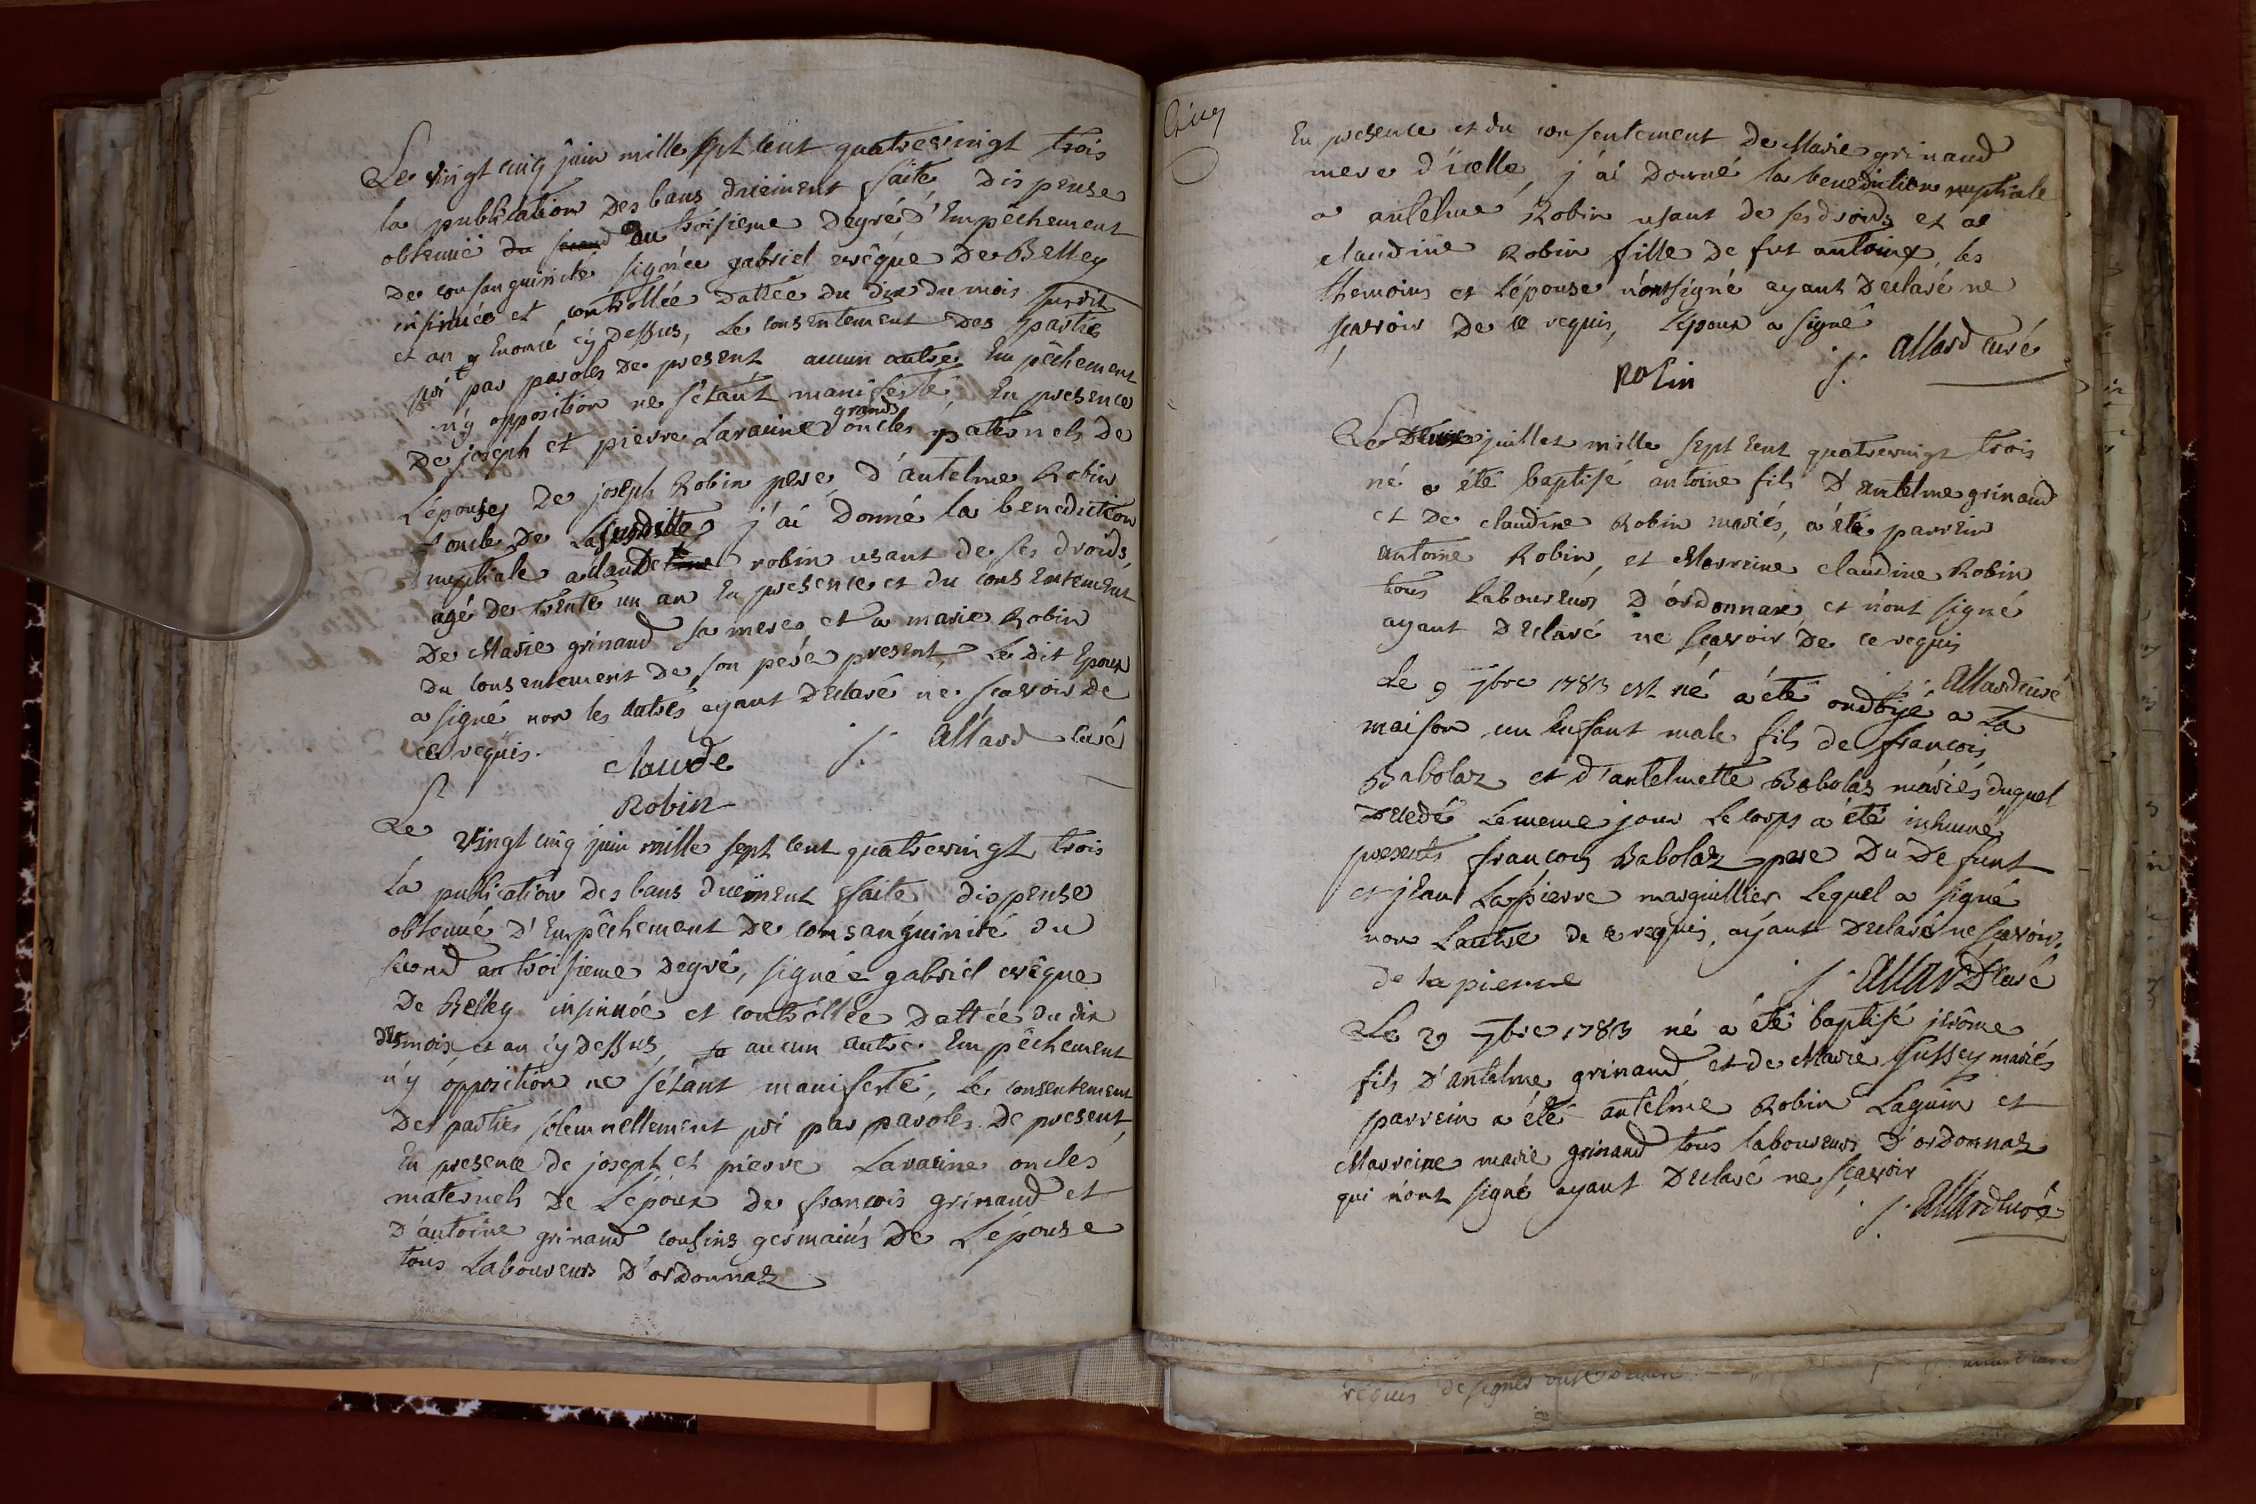 Le vingt cinq juin mille sept cent quatrevingt trois
la publication des bans düement faite, dispense
obtenüe du second au troisieme degré d'Empêchement
de consanguinité signée gabriel evêque de Belley
insinuée et controllée dattée du dix du mois susdit
et an Enoncé cÿ dessus, Le consentement des partie
pri par paroles de present aucun autre Empêchement
n'ÿ opposition ne s'étant manifesté, En presence
de joseph et pierre Laracine grands oncles paternels de
L'épouse, de joseph Robin pere d'antelme Robin
oncle de La susditte j'ai donné la benediction
nuptiale a claude robin usant de ses droids,
agé de trente un an En presence et du consentement
de Marie grinand sa mere, et a marie Robin
du consentement de son pere present, Le dit Epoux
a signé non les autres ayant declaré ne sçavoir de
ce requis.
claude j. allard curé
Robin
Le vingt cinq juin mille sept cent quatrevingt trois
La publication des bans düement faite dispense
obtenüe d'Empêchement de consanguinité du
second au troisieme degré, signée gabriel evêque
de Belley insinuée et controllée dattée du dix
des mois et an cÿ dessus, aucun autre Empêchement
n'ÿ opposition ne s'étant manifesté, Le consentement
des parties solemnellement pri par paroles de present,
En presence de joseph et pierre Laracine oncles
maternels de L'époux de françois grinand et
d'antoine grinand cousins germains de L'épouse
tous Laboureurs d'ordonnaz
Cinq
En presence et du consentement de Marie grinand
mere d'icelle, j'ai donné la benediction nuptiale
a antelme Robin usant de ses droids et a
claudine Robin fille de fut antoine, les
themoins et L'épouse n'ont signé ayant declaré ne
sçavoir de ce requis, L'époux a signé
j. allard curé
robin
Le deux juillet mille sept cent quatrevingt trois
né a été baptisé antoine fils d'antelme grinand
et de claudine Robin mariés, a été parrein
antoine Robin, et Marreine claudine Robin
tous laboureurs d'ordonnaz et n'ont signé
ayant declaré ne sçavoir de ce requis
j. allard curé
Le 9 7bre 1783 est né a été ondoÿé a La
maison un Enfant male fils de françois
Babolaz et d'antelmette Babolaz mariés duquel
decedé Le meme jour Le corps a été inhumé
presents françois Babolaz pere du defunt
et jean Lapierre marguillier Lequel a signé
non Lautre de ce requis, aÿant declaré ne sçavoir.
de la pierre j. allard curé
Le 29 7bre 1783 né a été baptisé jérôme
fils d'antelme grinand et de Marie Sussey mariés
parrein a été antelme Robin Laguin et
Marreine marie grinand tous laboureurs d'ordonnaz
qui n'ont signé ayant declaré ne sçavoir
j. allard curé
requis de signer